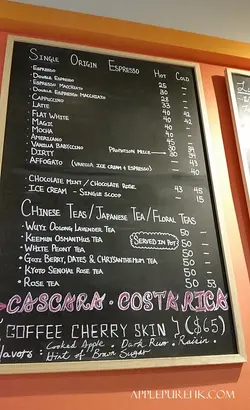 Single Origin Espresso Hot Cold
· Espresso 25 —
· Double Espresso 30 —
· Espresso Macchiato 28 —
· Double Espresso Macchiato
· Cappuccino
· Latte
· Flat White 40 42
· Magic
· Mocha
· Americano
· Vanilla Babyccino
· Dirty Promotion Melle
· Affogato (Vanilla Ice Cream & Espresso) — 40
· Chocolate Mint / Chocolate Rose 43 45
· Ice Cream - Single Scoop — 15
Chinese Teas/Japanese Tea/Floral Teas
· Wuyi Oolong Lavender Tea 50 —
· Keemun Osmanthus Tea 50 —
· White Peony Tea Served in Pot 50 —
· Goji Berry, Dates & Chrysanthemum Tea 50 —
· Kyoto Sencha Rose Tea 50 —
· Rose Tea 50 53
CASCARA · COSTA RICA
[COFFEE CHERRY SKIN] ($65)
Flavors : Cooked Apple . Dark Rum . Raisin .
Hint of Brown Sugar
APPLEPUREHK.COM